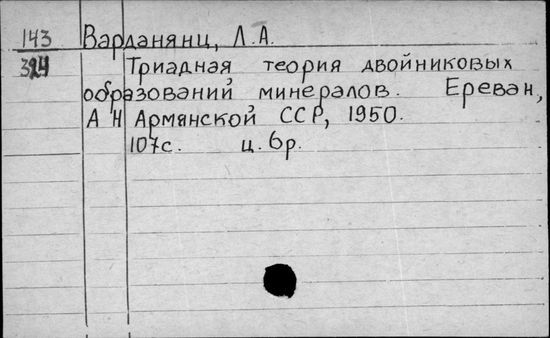 143 Варданянц, Л.А.
324 Триадная теория двойниковых
образований минералов. Ереван,
АН Армянской ССР, 1950.
107с. ц. 6р.